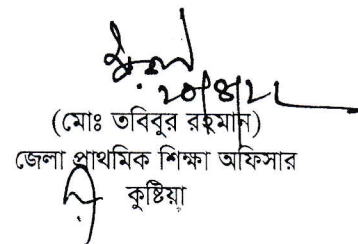 ২০/৪/২২
(মোঃ তবিবুর রহমান)
জেলা প্রাথমিক শিক্ষা অফিসার
কুষ্টিয়া